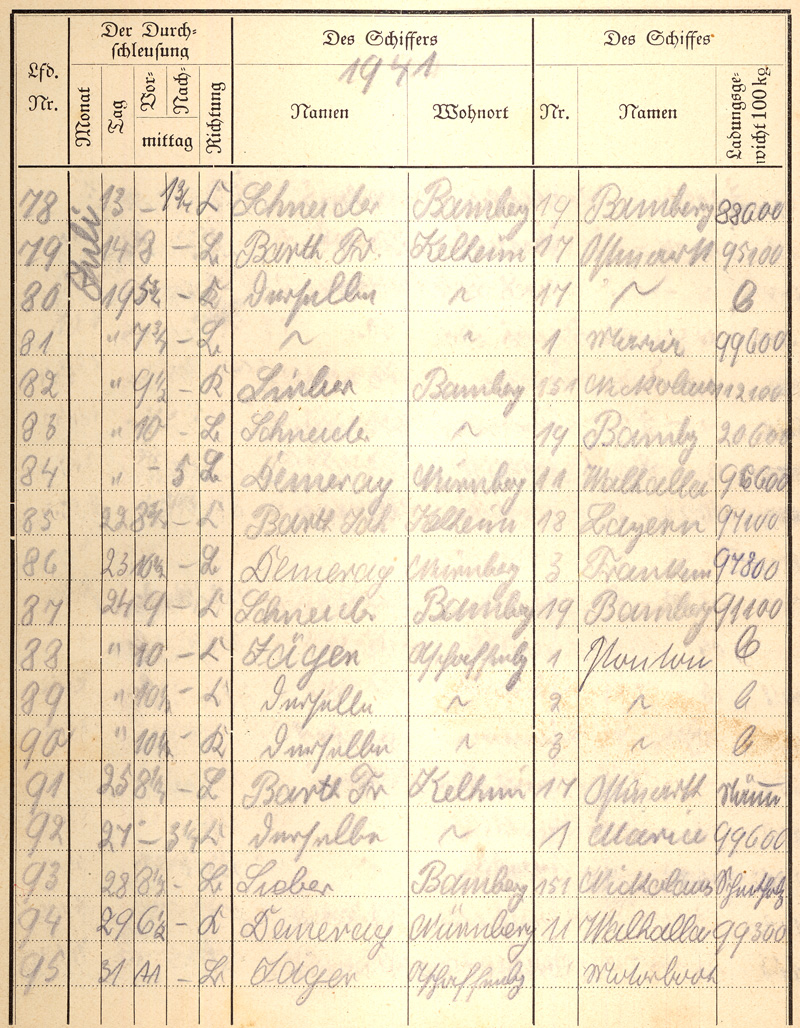 Lfd. Nr. Der Durchschleusung Des Schiffers Des Schiffes
1941
Monat Tag Vor- Nach- mittag Richtung Namen Wohnort Nr. Namen Ladungsgewicht 100 kg
Juli
78 13 – 1¾ K Schneider Bamberg 19 Bamberg 88600
79 14 8 – L Barth Fr. Kelheim 17 Ostmark 95100
80 19 5¾ – K derselbe ~ 17 ~
81 " 7¾ – L ~ ~ 1 Maria 99600
82 " 9½ – K Sieber Bamberg 151 Nickolaus 112100
83 " 10 – L Schneider ~ 19 Bambg 20600
84 " – 5 L Demerag Nürnberg 11 Walhalla 96600
85 22 8¾ – K Barth Joh Kelheim 18 Bayern 97100
86 23 10½ – L Demerag Nürnberg 3 Franken 97800
87 24 9 – K Schneider Bamberg 19 Bamberg 91100
88 " 10 – K Jäger Aschaffenbg 1 Ponton
89 " 10½ – K derselbe ~ 2 ~
90 " 10½ – K derselbe ~ 3 ~
91 25 8½ – L Barth Fr Kelheim 17 Ostmark
92 27 – 3½ K derselbe ~ 1 Marie 99600
93 28 8½ – L Sieber Bamberg 151 Nickolaus
94 29 6½ – K Demerag Nürnberg 11 Walhalla 99300
95 31 11 – L Jäger Aschaffenbg Motorboot